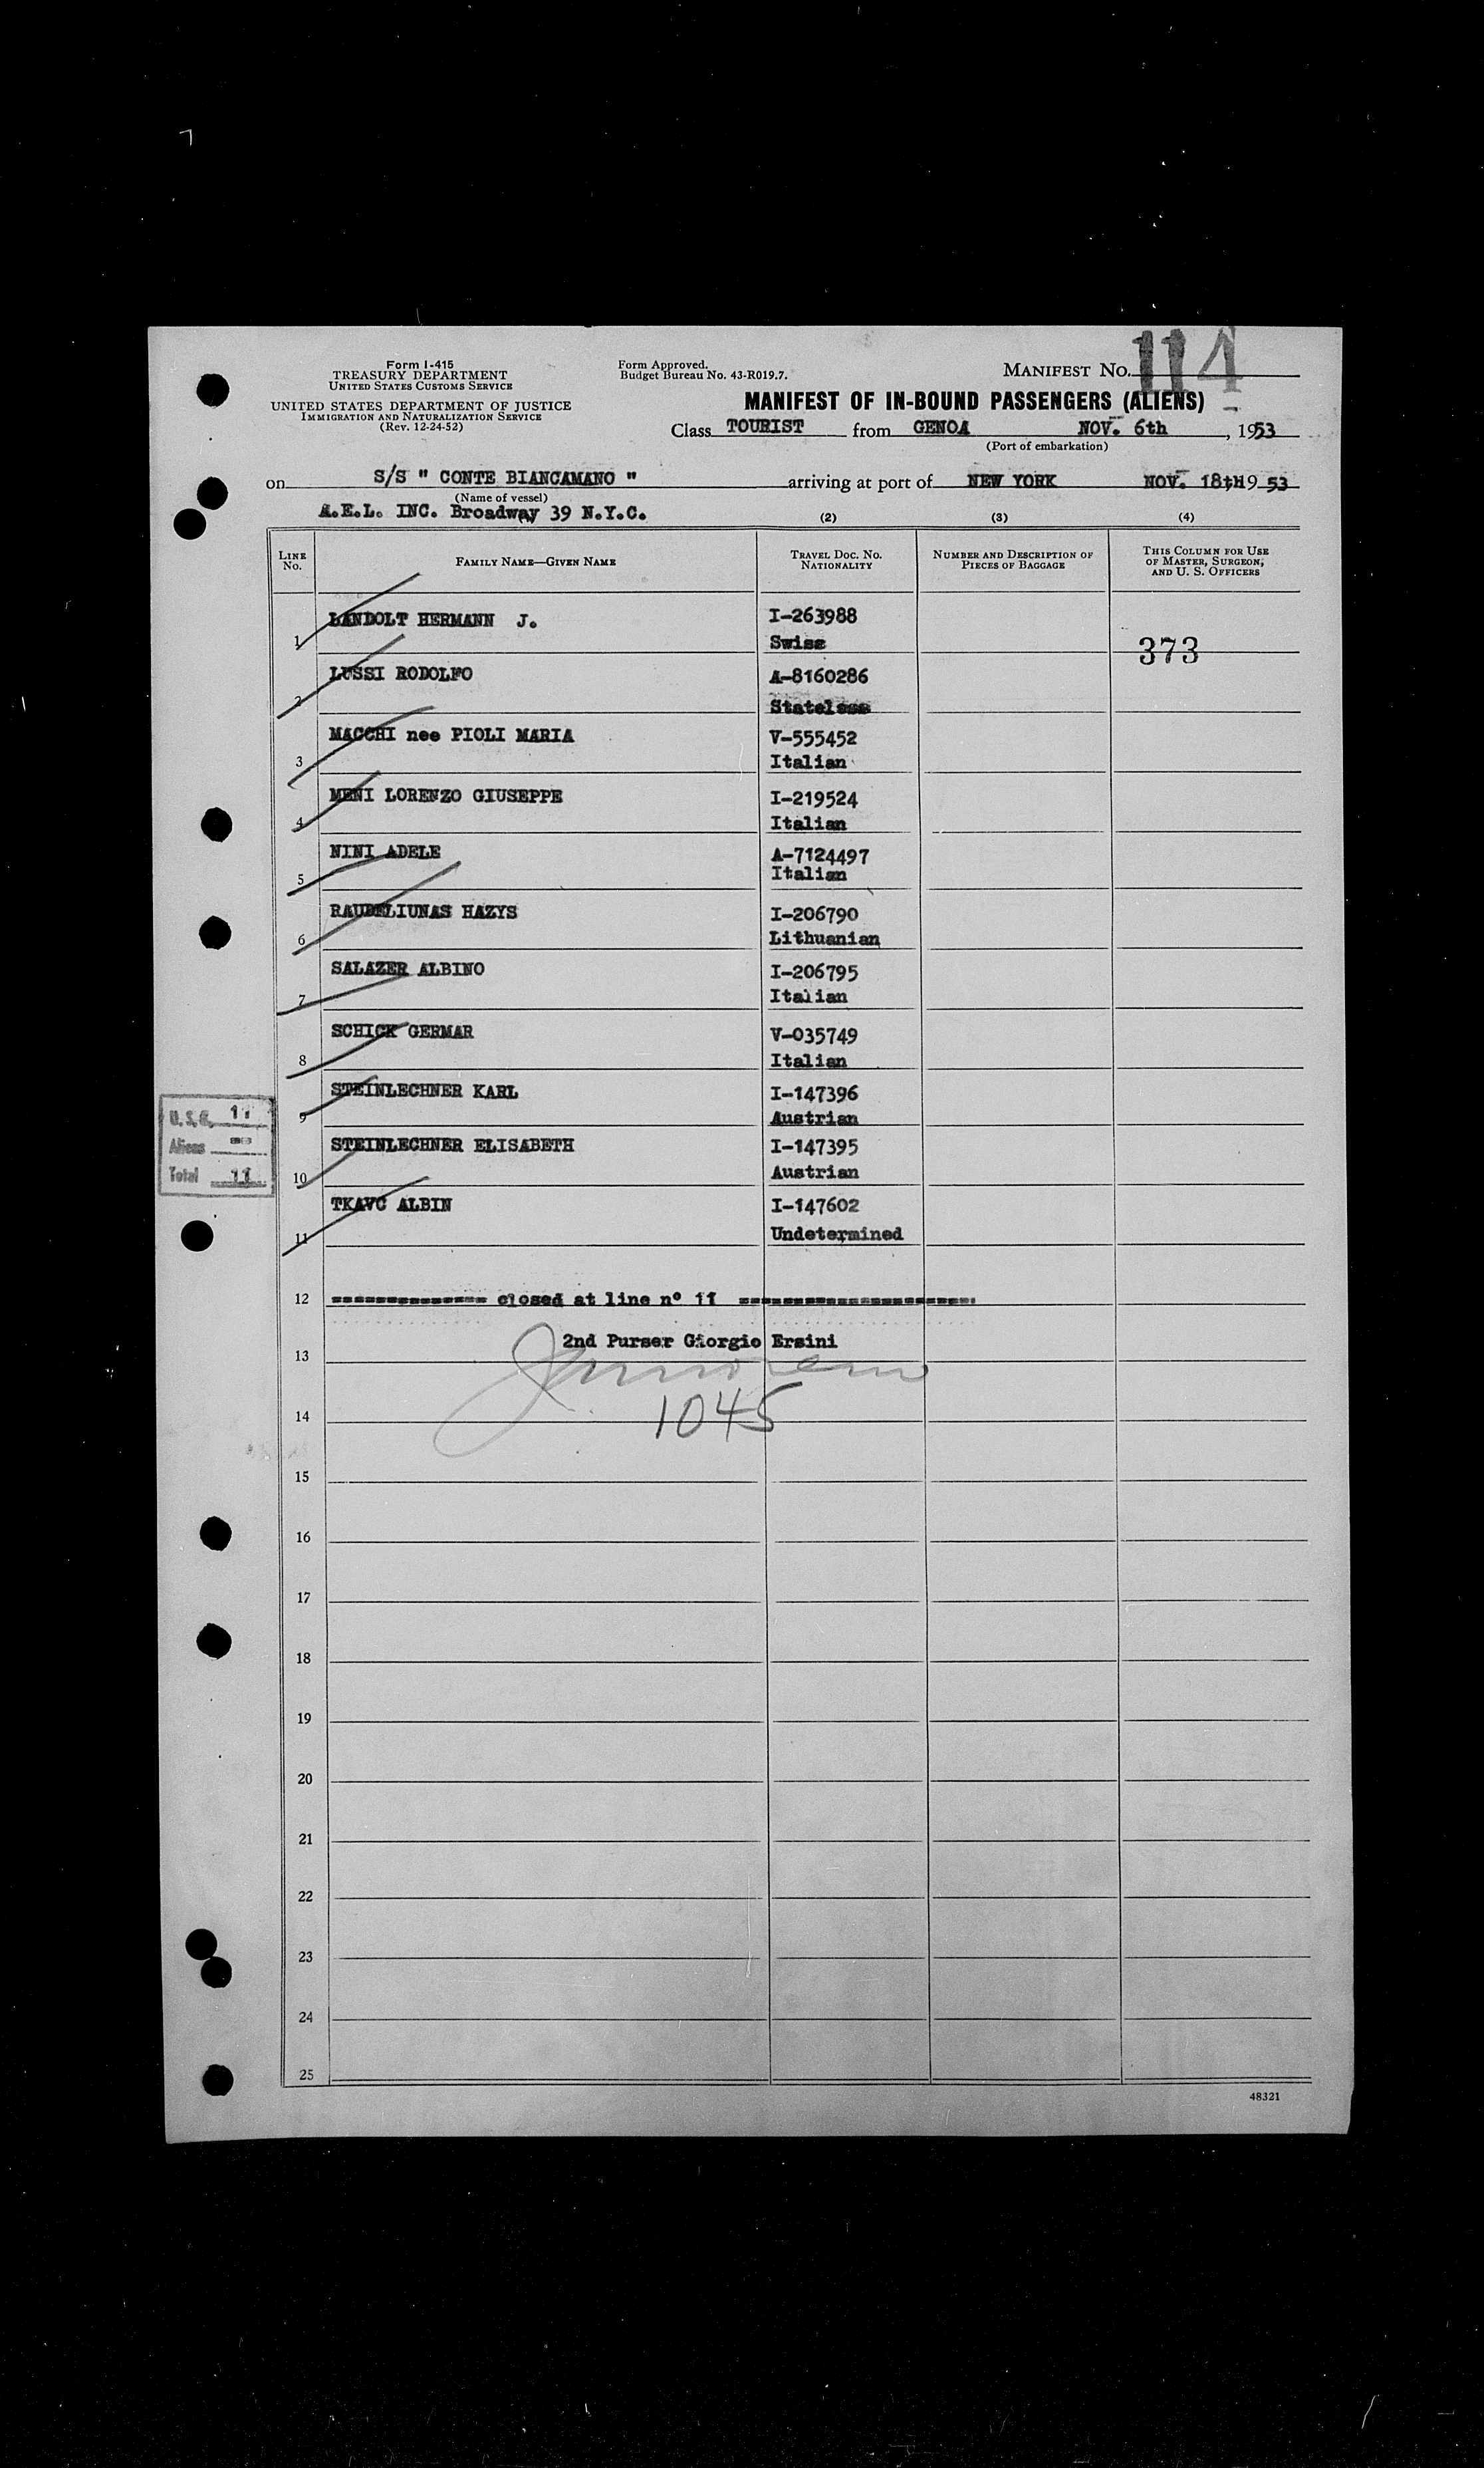 Form I-415
TREASURY DEPARTMENT
UNITED STATES CUSTOMS SERVICE
UNITED STATES DEPARTMENT OF JUSTICE
IMMIGRATION AND NATURALIZATION SERVICE
(Rev. 12-24-52)
Form Approved.
Budget Bureau No. 43-R019.7.
MANIFEST No. 114
MANIFEST OF IN-BOUND PASSENGERS (ALIENS)
Class TOURIST from GENOA NOV. 6th, 1953
(Port of embarkation)
on S/S " CONTE BIANCAMANO " arriving at port of NEW YORK NOV. 18tH 1953
(Name of vessel)
A.E.L. INC. Broadway 39 N.Y.C.
(2) (3) (4)
LINE No. FAMILY NAME—GIVEN NAME TRAVEL DOC. No. NATIONALITY NUMBER AND DESCRIPTION OF PIECES OF BAGGAGE THIS COLUMN FOR USE OF MASTER, SURGEON, AND U. S. OFFICERS
1 LANDOLT HERMANN J. I-263988
Swiss 373
2 LUSSI RODOLFO A-8160286
Stateless
3 MACCHI nee PIOLI MARIA V-555452
Italian
4 MENI LORENZO GIUSEPPE I-219524
Italian
5 NINI ADELE A-7124497
Italian
6 RAUDELIUNAS HAZYS I-206790
Lithuanian
7 SALAZER ALBINO I-206795
Italian
8 SCHICK GERMAR V-035749
Italian
9 STEINLECHNER KARL I-147396
Austrian
10 STEINLECHNER ELISABETH I-147395
Austrian
11 TKAVC ALBIN I-147602
Undetermined
U.S.C. 11
Aliens --
Total 11
12 ============== closed at line nº 11 =====================
2nd Purser Giorgio Ersini
13
1045
14
15
16
17
18
19
20
21
22
23
24
25
48321